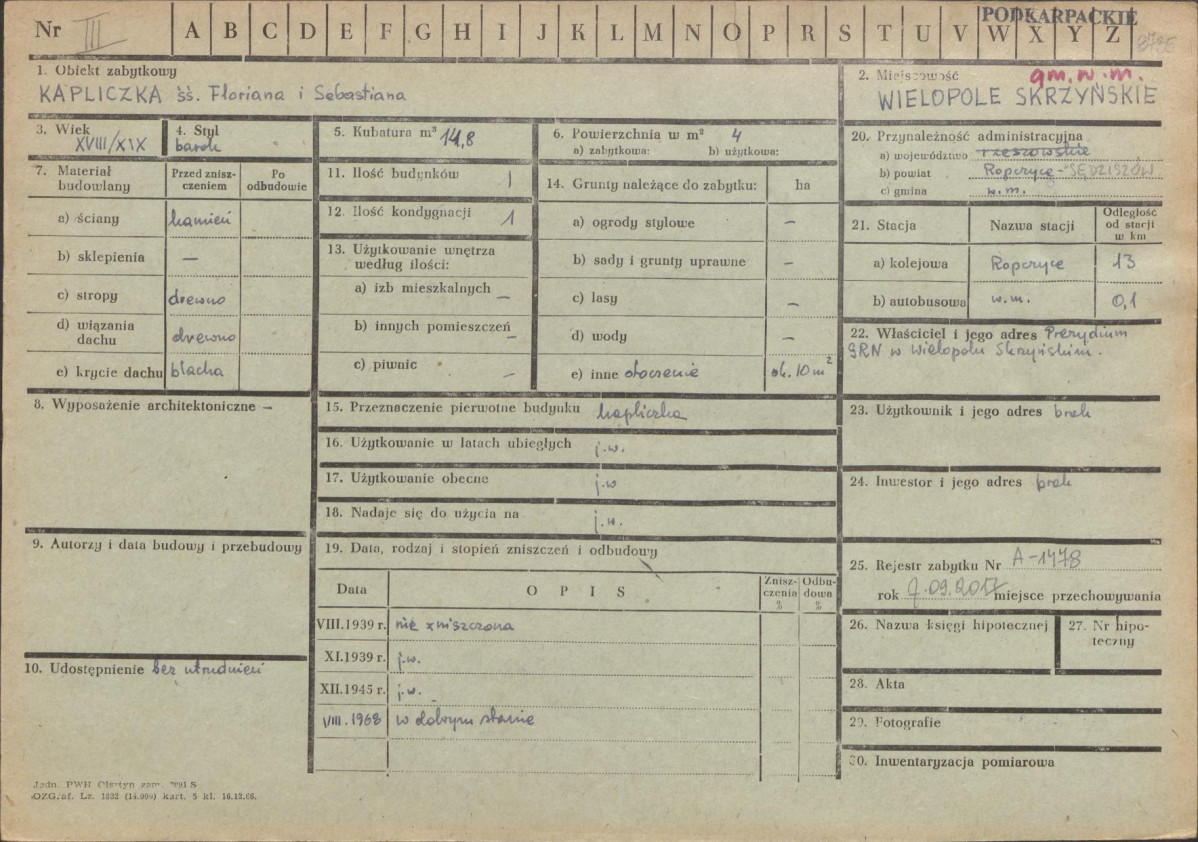 PODKARPACKIE
Nr III A B C D E F G H I J K L M N O P R S T U V W X Y Z
1. Obiekt zabytkowy
KAPLICZKA śś. Floriana i Sebastiana
2. Miejscowość gm. w. m.
WIELOPOLE SKRZYŃSKIE
3. Wiek
XVIII/XIX
4. Styl
barok
5. Kubatura m³ 14,8
6. Powierzchnia w m² 4
a) zabytkowa: b) użytkowa:
7. Materiał budowlany
Przed znisz-
czeniem
Po
odbudowie
a) ściany kamień
b) sklepienia –
c) stropy drewno
d) wiązania
dachu drewno
e) krycie dachu blacha
8. Wyposażenie architektoniczne –
9. Autorzy i data budowy i przebudowy
10. Udostępnienie bez utrudnień
11. Ilość budynków 1
12. Ilość kondygnacji 1
13. Użytkowanie wnętrza
według ilości:
a) izb mieszkalnych –
b) innych pomieszczeń –
c) piwnic –
14. Grunty należące do zabytku: ha
a) ogrody stylowe –
b) sady i grunty uprawne –
c) lasy –
d) wody –
e) inne otoczenie ok. 10 m²
15. Przeznaczenie pierwotne budynku kapliczka
16. Użytkowanie w latach ubiegłych j.w.
17. Użytkowanie obecne j.w
18. Nadaje się do użycia na j.w.
19. Data, rodzaj i stopień zniszczeń i odbudowy
Data O P I S
Znisz-
czenia
%
Odbu-
dowa
%
VIII.1939 r. nie zniszczona
XI.1939 r. j.w.
XII.1945 r. j.w.
VIII.1968 w dobrym stanie
20. Przynależność administracyjna
a) województwo rzeszowskie
b) powiat Ropczyce - SĘDZISZÓW
c) gmina w.m.
21. Stacja Nazwa stacji
Odległość
od stacji
w km
a) kolejowa Ropczyce 13
b) autobusowa w.m. 0,1
22. Właściciel i jego adres Prezydium
GRN w Wielopolu Skrzyńskim.
23. Użytkownik i jego adres brak
24. Inwestor i jego adres brak
25. Rejestr zabytku Nr A-1478
rok 7.09.2017 miejsce przechowywania
26. Nazwa księgi hipotecznej
27. Nr hipo-
teczny
28. Akta
29. Fotografie
30. Inwentaryzacja pomiarowa
Jedn. PWH Olsztyn zam. S
OZGraf. Lz. 1832 (14.000) kart. 5 kl. 16.12.66.